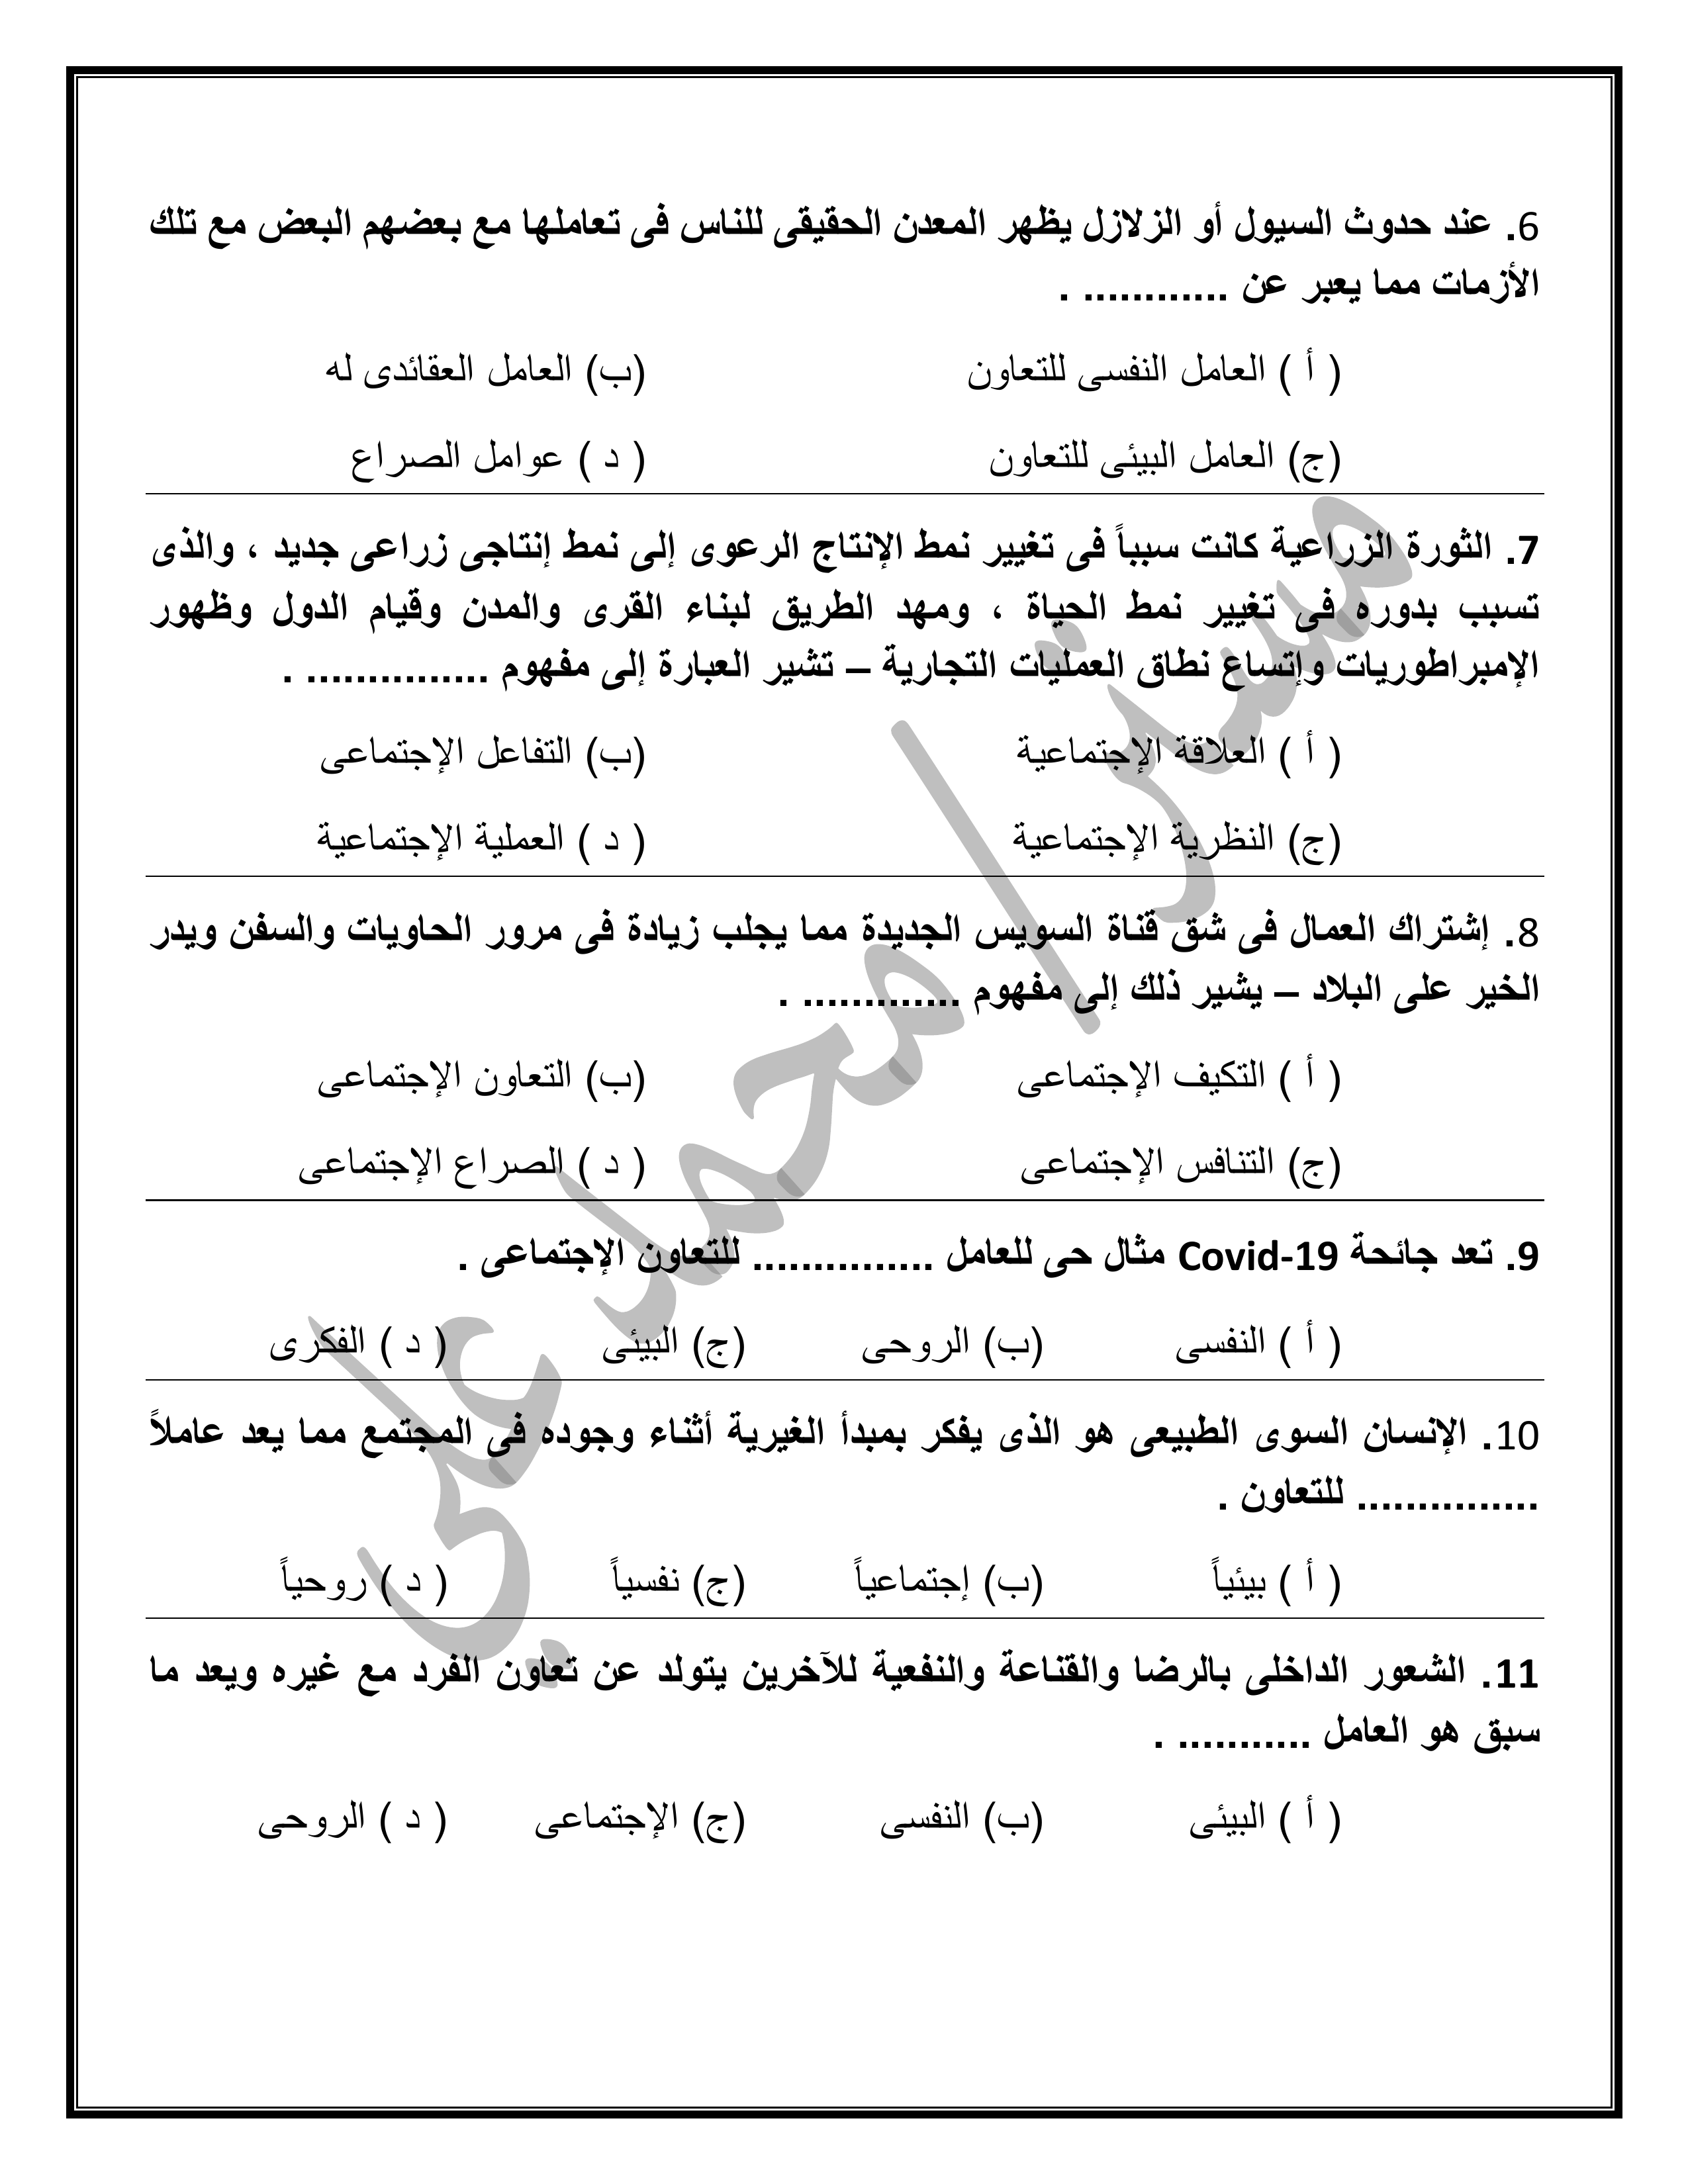 6. عند حدوث السيول أو الزلازل يظهر المعدن الحقيقى للناس فى تعاملها مع بعضهم البعض مع تلك
الأزمات مما يعبر عن ............ .
( أ ) العامل النفسى للتعاون (ب) العامل العقائدى له
(ج) العامل البيئى للتعاون ( د ) عوامل الصراع
7. الثورة الزراعية كانت سبباً فى تغيير نمط الإنتاج الرعوى إلى نمط إنتاجى زراعى جديد ، والذى
تسبب بدوره فى تغيير نمط الحياة ، ومهد الطريق لبناء القرى والمدن وقيام الدول وظهور
الإمبراطوريات وإتساع نطاق العمليات التجارية – تشير العبارة إلى مفهوم ............... .
( أ ) العلاقة الإجتماعية (ب) التفاعل الإجتماعى
(ج) النظرية الإجتماعية ( د ) العملية الإجتماعية
8. إشتراك العمال فى شق قناة السويس الجديدة مما يجلب زيادة فى مرور الحاويات والسفن ويدر
الخير على البلاد – يشير ذلك إلى مفهوم ............. .
( أ ) التكيف الإجتماعى (ب) التعاون الإجتماعى
(ج) التنافس الإجتماعى ( د ) الصراع الإجتماعى
9. تعد جائحة Covid-19 مثال حى للعامل ............... للتعاون الإجتماعى .
( أ ) النفسى (ب) الروحى (ج) البيئى ( د ) الفكرى
10. الإنسان السوى الطبيعى هو الذى يفكر بمبدأ الغيرية أثناء وجوده فى المجتمع مما يعد عاملاً
............... للتعاون .
( أ ) بيئياً (ب) إجتماعياً (ج) نفسياً ( د ) روحياً
11. الشعور الداخلى بالرضا والقناعة والنفعية للآخرين يتولد عن تعاون الفرد مع غيره ويعد ما
سبق هو العامل ........... .
( أ ) البيئى (ب) النفسى (ج) الإجتماعى ( د ) الروحى
مستر/ محمد علي